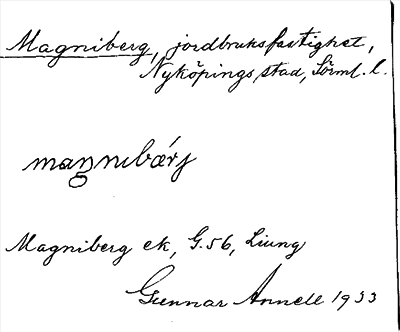 Magniberg, jordbruksfastighet,
Nyköpings stad, Sörml. l.
maŋnɩbærj
Magniberg ek, G.56, Liung
Gunnar Annell 1933